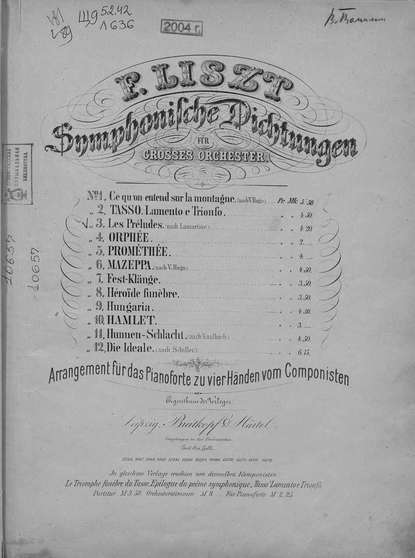 Щ9 52.42
1636
2004 г.
F. LISZT
Symphonische Dichtungen
FÜR
GROSSES ORCHESTER.
No 1, Ce qu'on entend sur la montagne. (nach V. Hugo) Pr. Mk. 5.50
" 2, TASSO. Lamento e Trionfo. " " 4.50
" 3, Les Préludes. (nach Lamartine) " " 4.20
" 4, ORPHÉE. " " 2.
" 5, PROMÉTHÉE. " " 4.
" 6, MAZEPPA. (nach V. Hugo) " " 4.50
" 7, Fest-Klänge. " " 3.50
" 8, Héroïde funèbre. " " 3.50
" 9, Hungaria. " " 4.50
" 10, HAMLET. " " 3.
" 11, Hunnen-Schlacht. (nach Kaulbach) " " 4.50
" 12, Die Ideale. (nach Schiller) " " 6.15
Arrangement für das Pianoforte zu vier Händen vom Componisten
Eigenthum der Verleger.
Leipzig, Breitkopf & Härtel.
Eingetragen in das Vereinsarchiv.
In gleichem Verlage erschien von demselben Componisten:
Le Triomphe funèbre du Tasse, Epilogue du poème symphonique, Tasso Lamento e Trionfo.
Partitur M 3.50. Orchesterstimmen M 8. Für Pianoforte M 2.25.
10657
10657